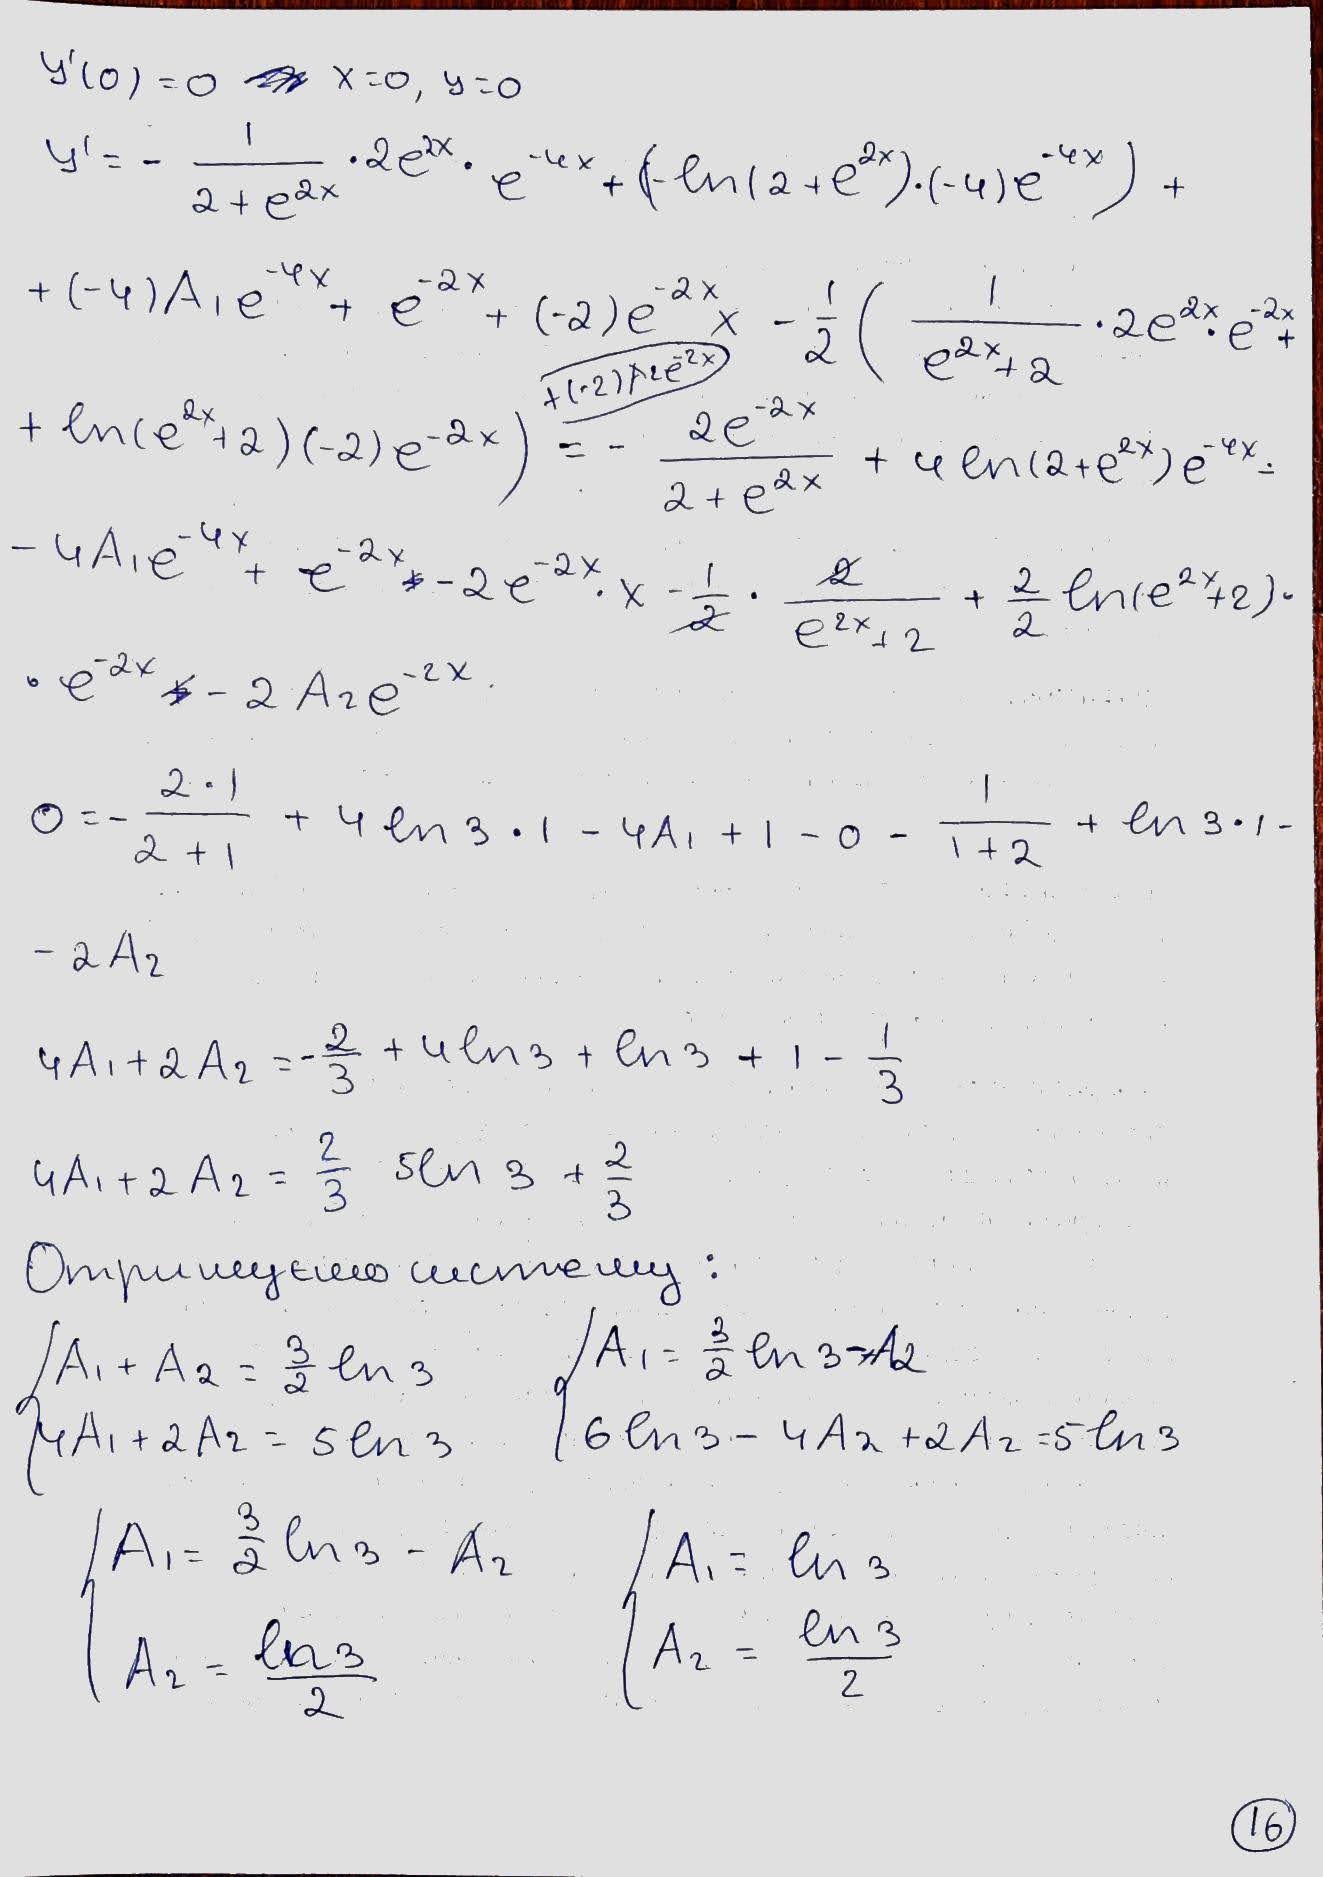 y'(0)=0 x=0, y=0
y' = - 1/(2+e^{2x}) · 2e^{2x} · e^{-4x} + (-ln(2+e^{2x})·(-4)e^{-4x}) +
+(-4)A₁e^{-4x} + e^{-2x} + (-2)e^{-2x} x - 1/2 ( 1/(e^{2x}+2) · 2e^{2x} · e^{-2x} +
+(-2)A₂e^{-2x}
+ ln(e^{2x}+2)(-2)e^{-2x} ) = - 2e^{-2x}/(2+e^{2x}) + 4ln(2+e^{2x})e^{-4x} -
- 4A₁e^{-4x} + e^{-2x} - 2e^{-2x}·x - 1/2 · 2/(e^{2x}+2) + 2/2 ln(e^{2x}+2)·
· e^{-2x} - 2A₂e^{-2x}.
0 = - (2·1)/(2+1) + 4 ln3·1 - 4A₁ + 1 - 0 - 1/(1+2) + ln3·1 -
- 2A₂
4A₁ + 2A₂ = - 2/3 + 4ln3 + ln3 + 1 - 1/3
4A₁ + 2A₂ = 2/3 5ln3 + 2/3
Отримуємо систему:
{ A₁ + A₂ = 3/2 ln3 { A₁ = 3/2 ln3 - A₂
4A₁ + 2A₂ = 5ln3 6ln3 - 4A₂ + 2A₂ = 5ln3
{ A₁ = 3/2 ln3 - A₂ { A₁ = ln3
A₂ = ln3/2 A₂ = ln3/2
16